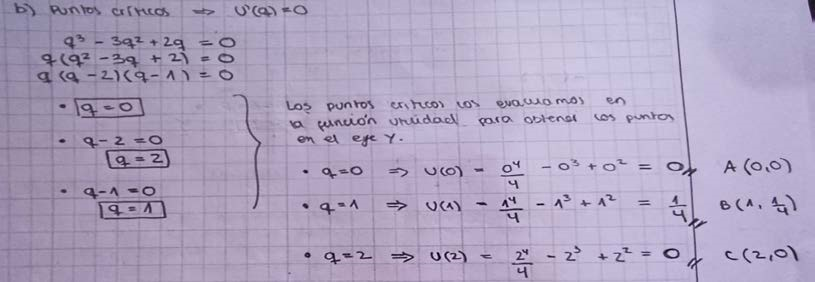 b) Puntos críticos ⇒ U'(q)=0
q³ - 3q² + 2q = 0
q(q² - 3q + 2) = 0
q(q - 2)(q - 1) = 0
• q = 0
• q - 2 = 0
q = 2
• q - 1 = 0
q = 1
Los puntos críticos los evaluamos en
la función utilidad para obtener los puntos
en el eje Y.
• q=0 ⇒ U(0) = 0⁴/4 - 0³ + 0² = 0// A(0,0)
• q=1 ⇒ U(1) = 1⁴/4 - 1³ + 1² = 1/4// B(1, 1/4)
• q=2 ⇒ U(2) = 2⁴/4 - 2³ + 2² = 0// C(2,0)